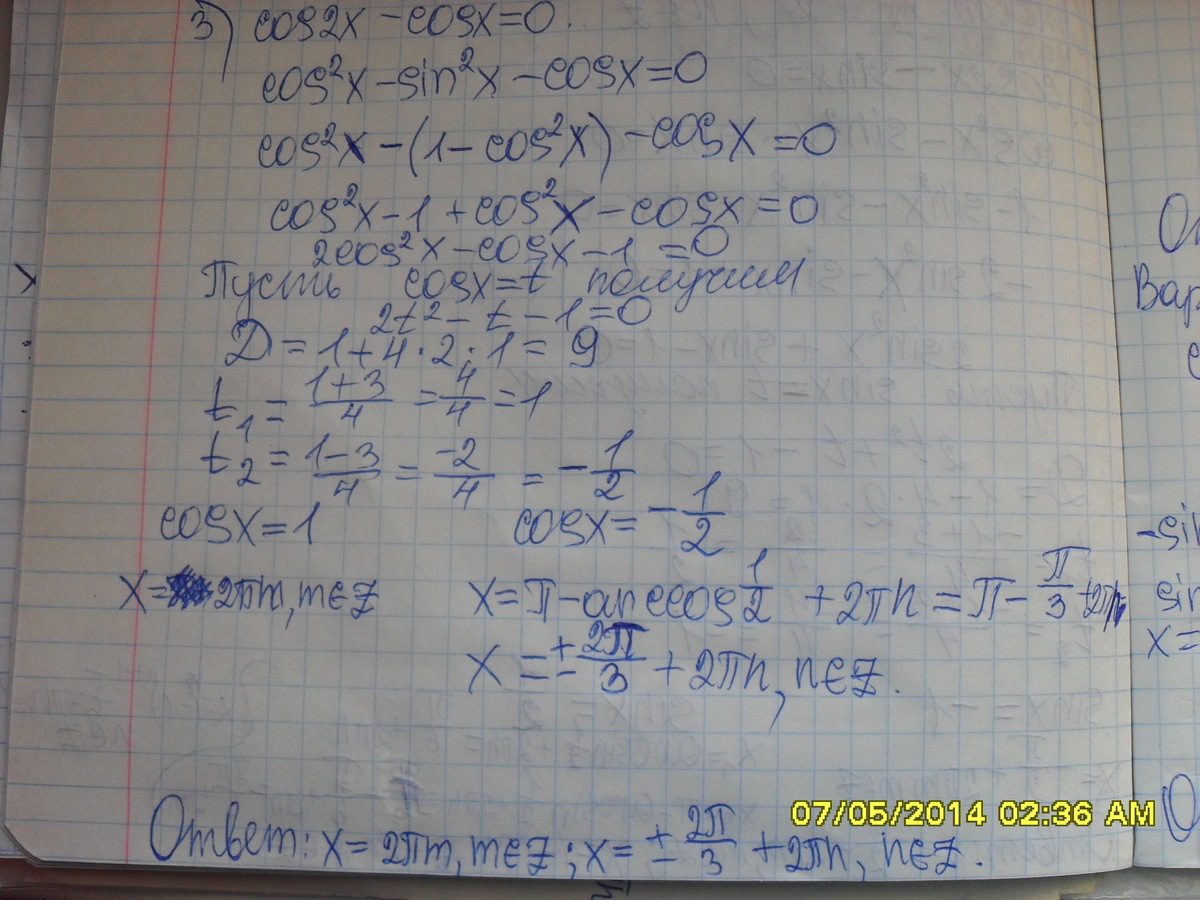 3) cos2x - cosx = 0
cos²x - sin²x - cosx = 0
cos²x - (1 - cos²x) - cosx = 0
cos²x - 1 + cos²x - cosx = 0
2cos²x - cosx - 1 = 0
Пусть cosx = t получим
2t² - t - 1 = 0
D = 1 + 4·2·1 = 9
t₁ = (1+3)/4 = 4/4 = 1
t₂ = (1-3)/4 = -2/4 = -1/2
cosx = 1 cosx = -1/2
x = 2πm, m∈Z x = π - arccos 1/2 + 2πn = π - π/3 + 2πn
x = ± 2π/3 + 2πn, n∈Z.
Ответ: x = 2πm, m∈Z; x = ± 2π/3 + 2πn, n∈Z.
07/05/2014 02:36 AM
Вар
-sin
sin
x =